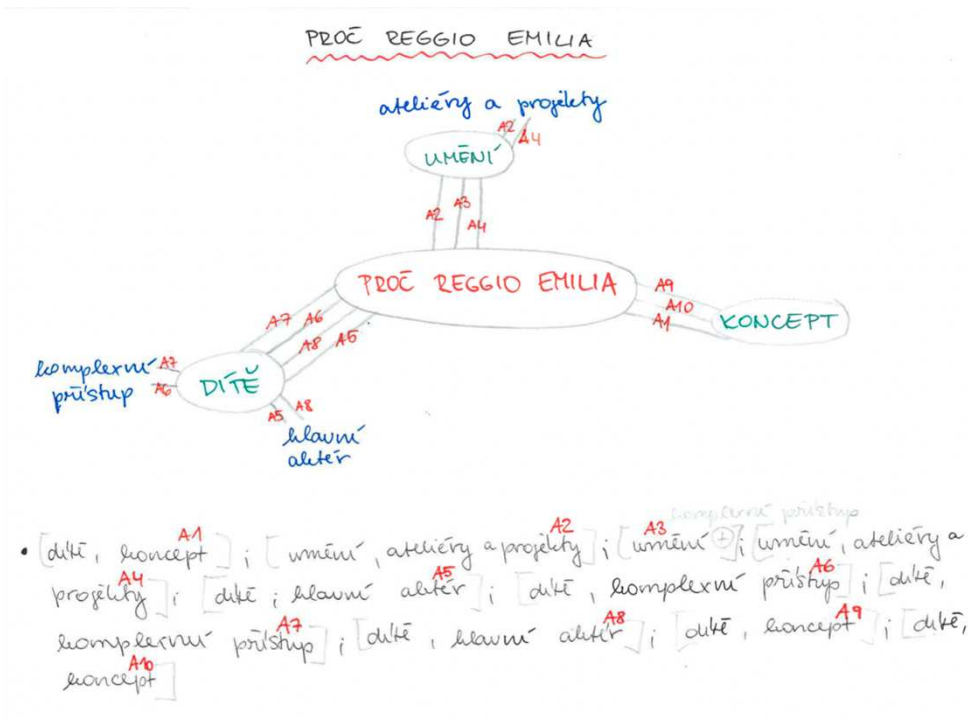 PROČ REGGIO EMILIA
ateliéry a projekty
A2
A4
UMĚNÍ
A2 A3 A4
PROČ REGGIO EMILIA
A9
A10
A1
KONCEPT
A7 A6
A8 A5
komplexní A7
přístup A6
DÍTĚ
A5 A8
hlavní
aktér
komplexní přístup
A1 A2 A3
• [dítě, koncept]; [umění, ateliéry a projekty]; [umění +]; [umění, ateliéry a
A4 A5 A6
projekty]; [dítě; hlavní aktér]; [dítě, komplexní přístup]; [dítě,
A7 A8 A9
komplexní přístup]; [dítě, hlavní aktér]; [dítě, koncept]; [dítě,
A10
koncept]